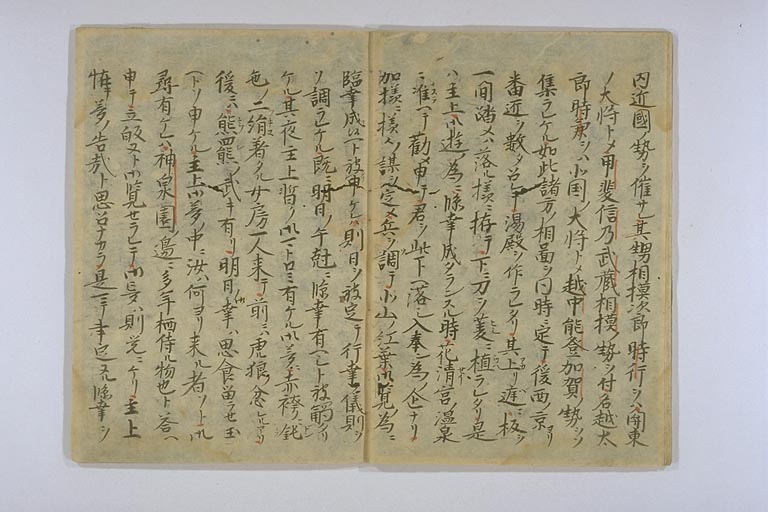 内近國ノ勢ヲ催サル其甥相摸次郎時行ヲハ関東
ノ大将トメ甲斐信乃武蔵相摸ノ勢ヲ付ラル越太
郎時兼ヲハ小国ノ大将トメ越中能登加賀ノ勢ヲソ
集ラレケル如此諸方ノ相圖ヲ同時ニ定テ後西ノ京ヨリ
番匠ヲ数タ召テ湯殿ヲ作ラレタリ其上リ遅ニ板ヲ
一間踏メハ落ル様ニ拵テ下ニ刀ヲ菱ニ植ラレタリ是
ハ主上御遊ノ為ニ臨幸成タランスル時花清宮ノ温泉
ニ准ヘテ勧メ申テ君ヲ此下ヘ落シ入奉ン為ノ企ナリ
加様ニ様々ノ謀ヲ定メ兵ヲ調テ北山ノ紅葉御覧ノ為ニ
臨幸成ルヘシト被申ケレハ則日ヲ被定テ行幸ノ儀則ヲ
ソ調ラレケル既ニ明日ノ午尅ニ臨幸有ヘシト被觸タリ
ケル其夜主上暫ノ御マトロミ有ケル御夢ニ赤袴ニ鈍
色ノ二絹著タル女房一人来テ前ニハ虎狼ノ怠ルアリ
後ニハ熊羆ノ武キ有リ明日ノ幸ハ思食留ラセ玉
ヘトソ申ケル主上御夢ノ中ニ汝ハ何ヨリ来ル者ソト御
尋有ケレハ神泉園邉ニ多年栖侍ル物也ト答ヘ
申テ立皈ヌト御覧セラレテ御夢ハ則覚ニケリ主上
恠夢ノ告哉ト思召ナカラ是マテ事定ヌル臨幸ヲ